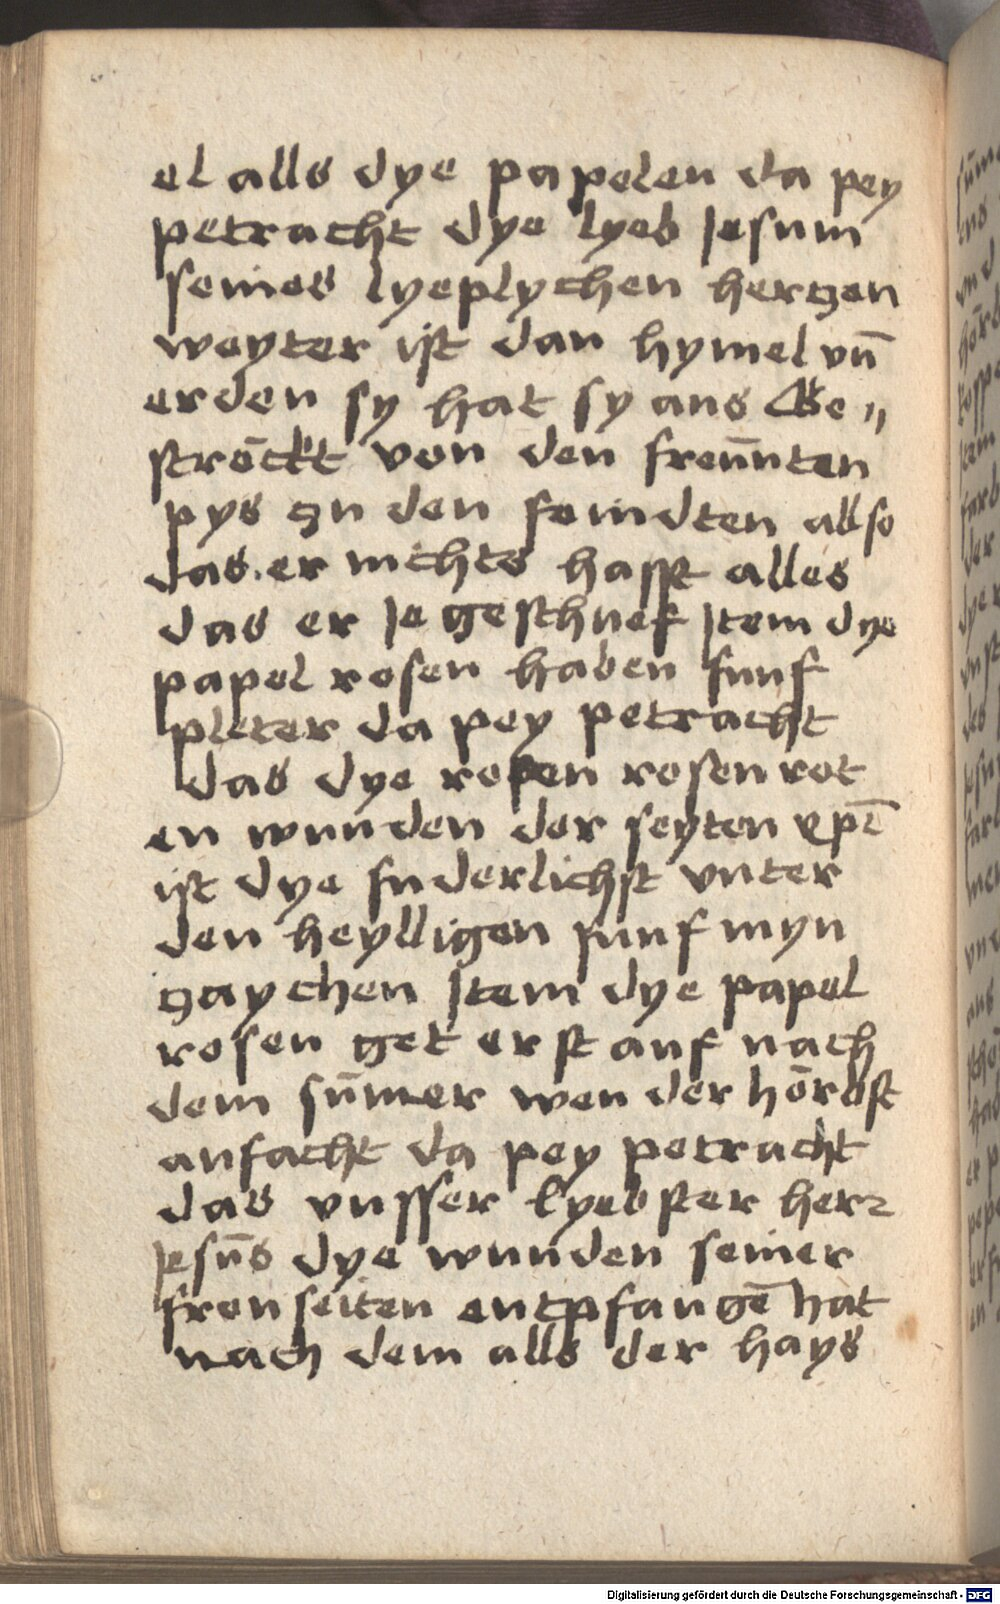 el alls dye papelen da pey
petracht dye lyeb Jesum
seines lyeplychen hertzen
weyter ist dan hymel vn̄
erden sy hat sy aus Ge〃
strōckt von den freūnten
pys zu den feindten allso
das er nichts hasst alles
das er Je geschuef Jtem dye
papel rosen haben funf
pleter da pey petracht
das dye rosen rosen rot
en wunden der seyten xp̄i
ist dye suderlichst vnter
den heylligen funf myn
zaychen Jtem dye papel
rosen get erst auf nach
dem sūmer wen der hōrbst
anfacht da pey petracht
das vnsser lyebster herr
Jesūs dye wunden seiner
fron seiten entpfangē hat
nach dem alls der hays
Digitalisierung gefördert durch die Deutsche Forschungsgemeinschaft - DFG